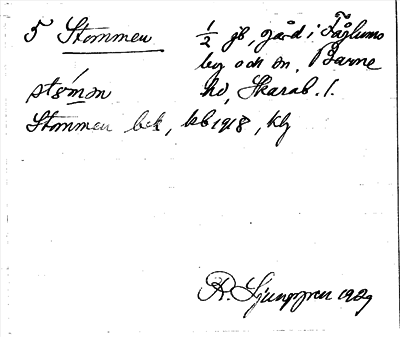 5 Stommen 1/2 gb, gård i Fåglums
by och sn, Barne
støm̀ən hd, Skarab. l.
Stommen bek, kb 1918, klg
R. Ljunggren 1929